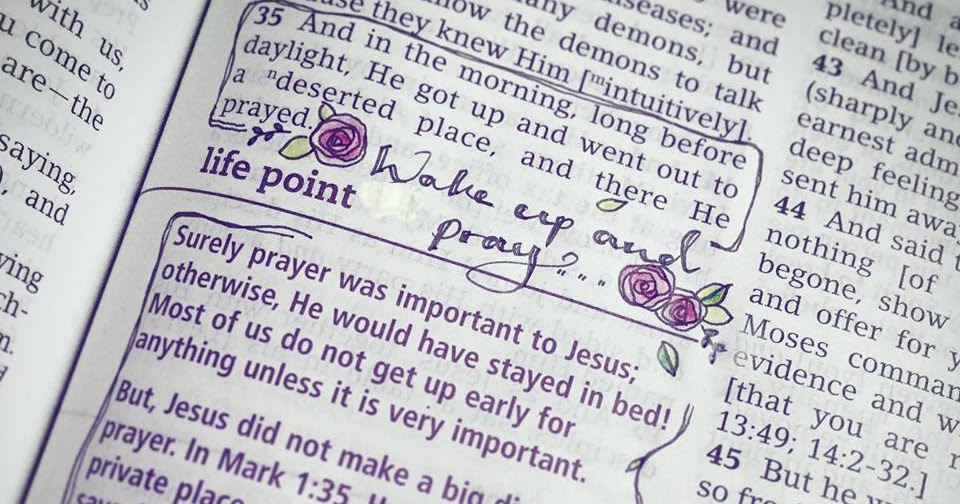 with us,
u come to
are—the
saying,
), and
ying
ch-
m.
use they knew Him [ᵐintuitively].
35 And in the morning, long before
daylight, He got up and went out to
a ⁿdeserted place, and there He
prayed.
Wake up and
pray
life point
Surely prayer was important to Jesus;
otherwise, He would have stayed in bed!
Most of us do not get up early for
anything unless it is very important.
But, Jesus did not make a big
prayer. In Mark 1:35,
private place
were
diseases; and
many demons, but
the demons to talk
And a
pletely] le
clean [by b
43 And Je
(sharply and
earnest adm
deep feeling
sent him awa
44 And said t
nothing [of
begone, show
and offer for y
Moses comman
evidence and w
[that you are r
13:49; 14:2-32.]
45 But he
so fre